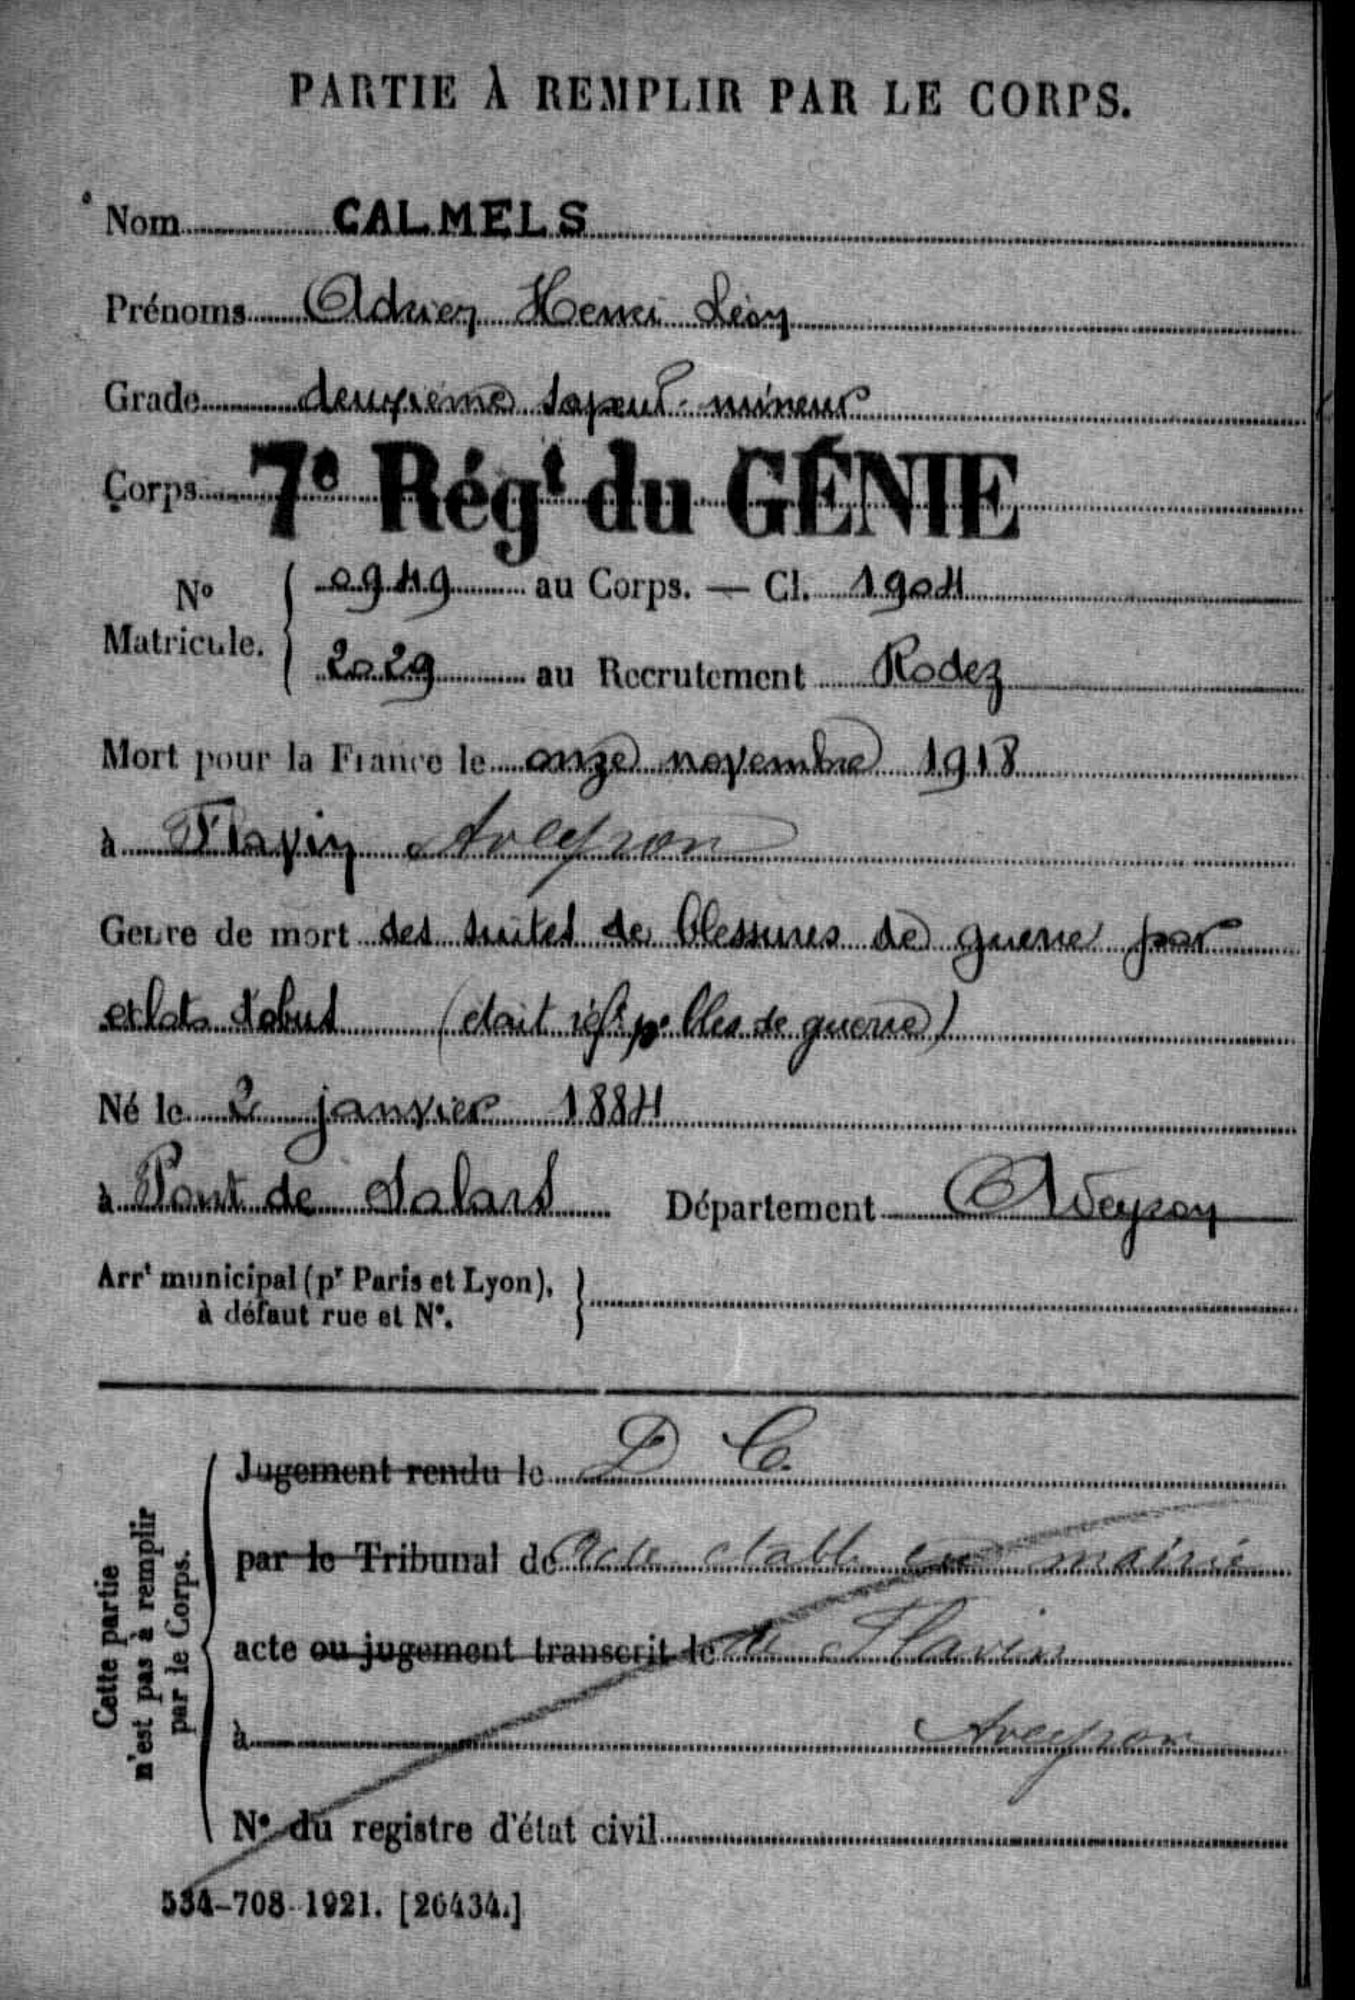 PARTIE À REMPLIR PAR LE CORPS.
Nom CALMELS
Prénoms Adrien Henri Léon
Grade deuxième sapeur-mineur
Corps 7e Régt du GÉNIE
No Matricule. { 0949 au Corps. — Cl. 1904
2029 au Recrutement Rodez
Mort pour la France le onze novembre 1918
à Flavin Aveyron
Genre de mort des suites de blessures de guerre par
eclats d'obus (était réfé pr bles de guerre)
Né le 2 janvier 1884
à Pont de Salars Département Aveyron
Arrt municipal (pr Paris et Lyon), }
à défaut rue et No.
Cette partie
n'est pas à remplir
par le Corps.
Jugement rendu le D C.
par le Tribunal de Acte établi en mairie
acte ou jugement transcrit le de Flavin
à Aveyron
No du registre d'état civil
534-708-1921. [26434.]